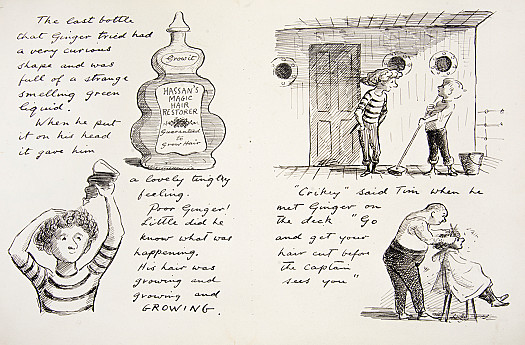 The last bottle
that Ginger tried had
a very curious
shape and was
full of a strange
smelling green
liquid.
When he put
it on his head
it gave him
Growit
HASSAN'S
MAGIC
HAIR
RESTORER
Guaranteed
to
Grow Hair
a lovely tingly
feeling.
Poor Ginger!
Little did he
know what was
happening.
His hair was
growing and
growing and
GROWING.
"Crikey" said Tim when he
met Ginger on
the deck "Go
and get your
hair cut before
the Captain
sees you"